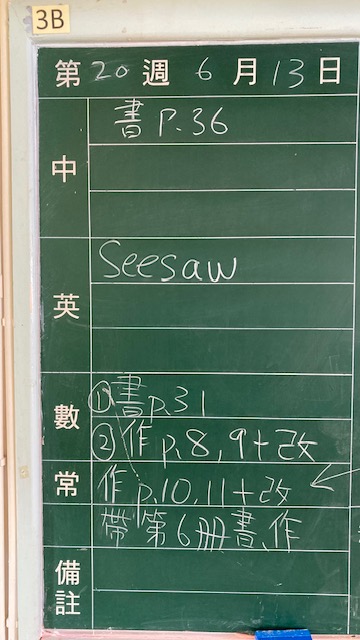 3B
第20週6月13日
中
書P.36
英
Seesaw
數
①書p.31
②作p.8,9+改
常
作p.10,11+改
帶第6冊書、作
備註